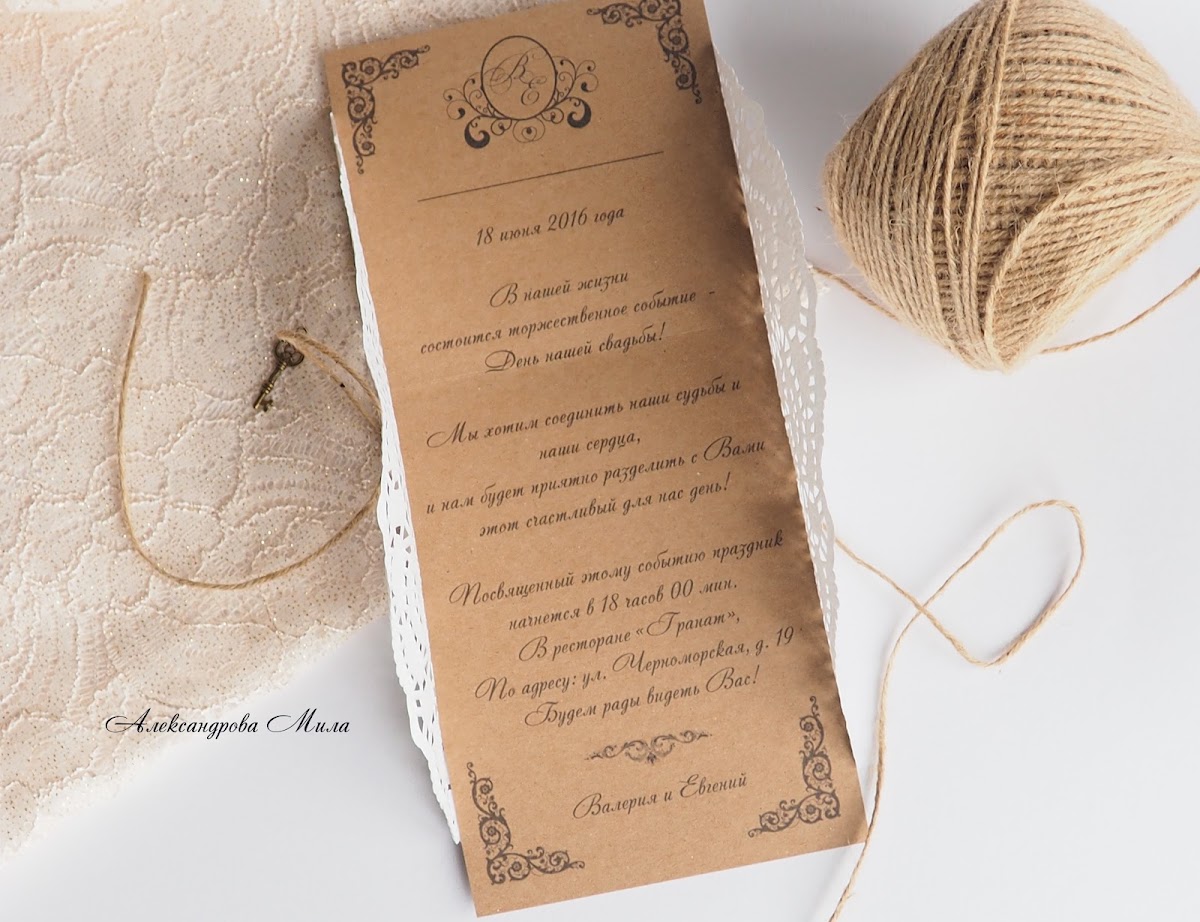 В Е
18 июня 2016 года
В нашей жизни
состоится торжественное событие -
День нашей свадьбы!
Мы хотим соединить наши судьбы и
наши сердца,
и нам будет приятно разделить с Вами
этот счастливый для нас день!
Посвященный этому событию праздник
начнется в 18 часов 00 мин.
В ресторане «Гранат»,
По адресу: ул. Черноморская, д. 19
Будем рады видеть Вас!
Валерия и Евгений
Александрова Мила